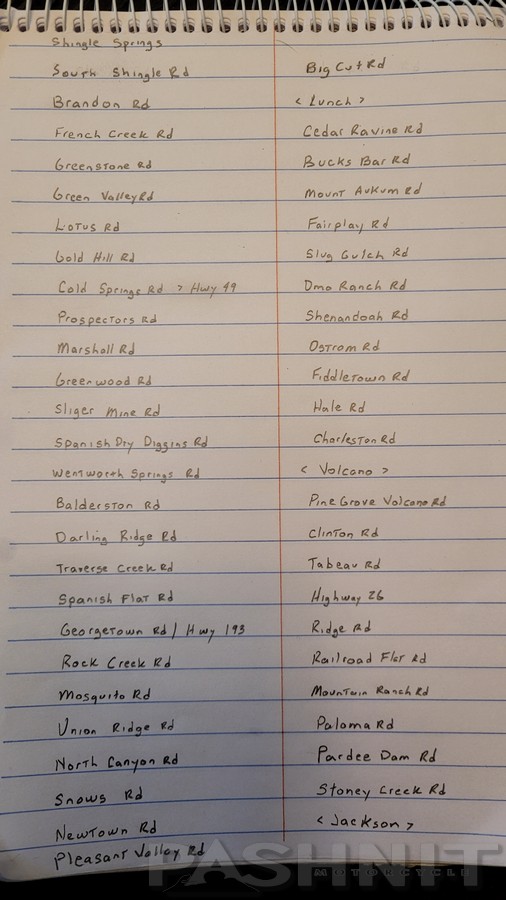 Shingle Springs
South Shingle Rd
Brandon Rd
French Creek Rd
Greenstone Rd
Green Valley Rd
Lotus Rd
Gold Hill Rd
Cold Springs Rd > Hwy 49
Prospectors Rd
Marshall Rd
Greenwood Rd
Sliger Mine Rd
Spanish Dry Diggins Rd
Wentworth Springs Rd
Balderston Rd
Darling Ridge Rd
Traverse Creek Rd
Spanish Flat Rd
Georgetown Rd / Hwy 193
Rock Creek Rd
Mosquito Rd
Union Ridge Rd
North Canyon Rd
Snows Rd
Newtown Rd
Pleasant Valley Rd
Big Cut Rd
< Lunch >
Cedar Ravine Rd
Bucks Bar Rd
Mount Aukum Rd
Fairplay Rd
Slug Gulch Rd
Omo Ranch Rd
Shenandoah Rd
Ostrom Rd
Fiddletown Rd
Hale Rd
Charleston Rd
< Volcano >
Pine Grove Volcano Rd
Clinton Rd
Tabeau Rd
Highway 26
Ridge Rd
Railroad Flat Rd
Mountain Ranch Rd
Paloma Rd
Pardee Dam Rd
Stoney Creek Rd
< Jackson >
PASHNIT
MOTORCYCLE